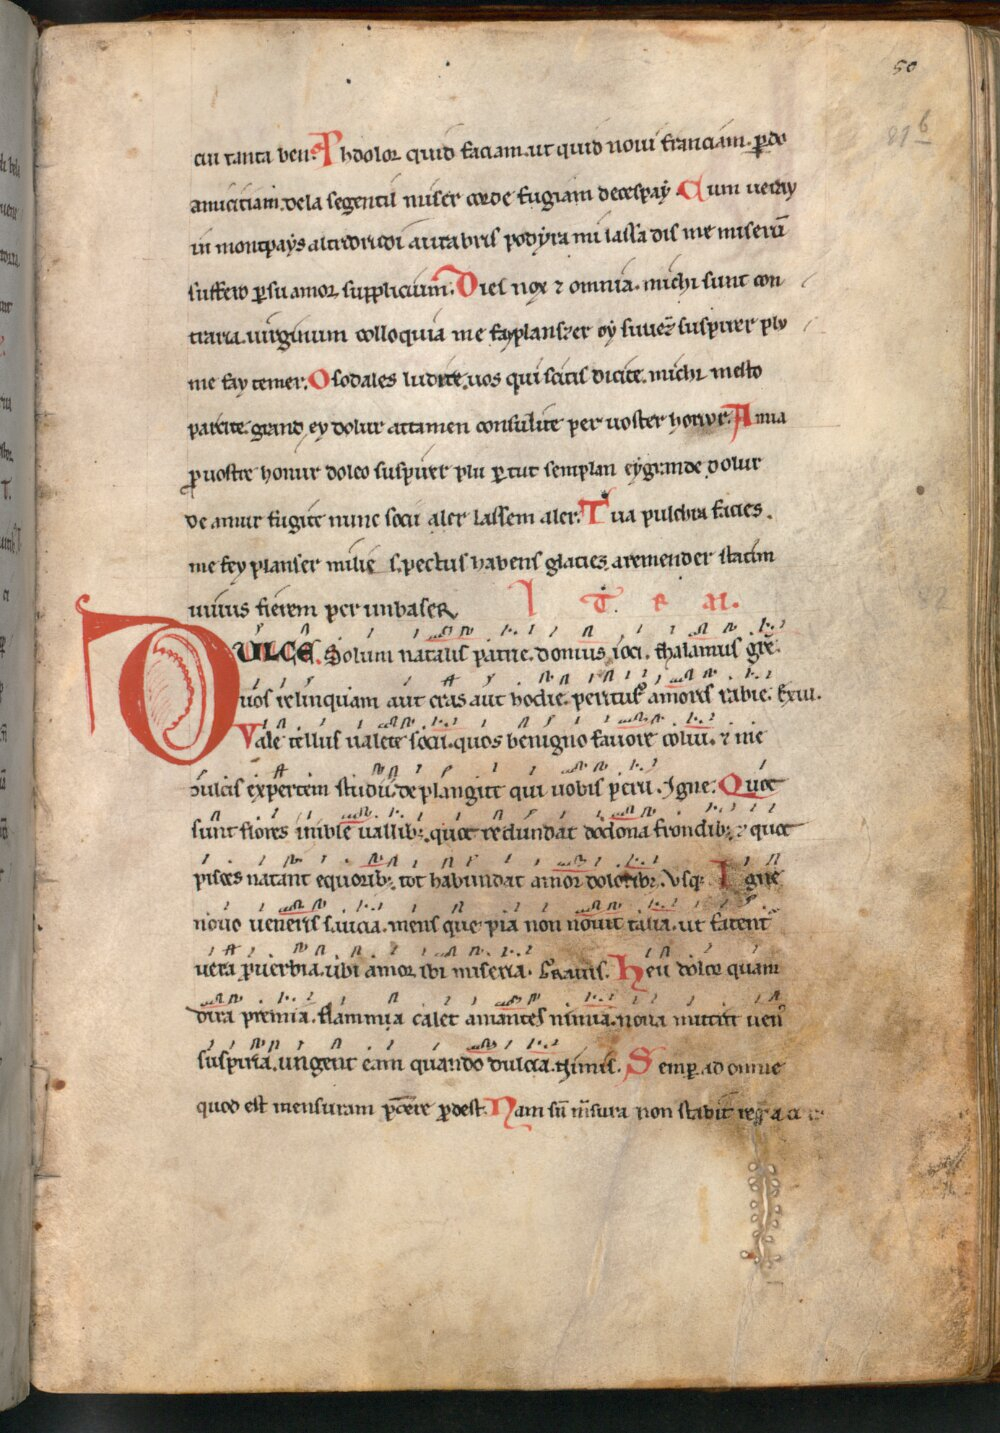 50
81b
cui tanta beu. Prhdolor quid faciam. ut quid noui franciam. perdo
amicitiam. dela segentil miser corde fugiam decespay. Cum ueray
in montpays altredrudi aurabris podyra mi lassa dis me miserū
suffero p su amor supplicium. Dies nox ⁊ omnia. michi sunt con
traria. uirginum colloquia me fayplanszer oy suuez suspirer plu
me fay temer. O sodales ludite. uos qui scitis dicite. michi mesto
parcite. grand ey dolur attamen consulite per uoster honur. A mia
p uostre honur doleo suspirer plu p tut semplan eygrande dolur
de amur fugite nunc socii aler lassem aler. Tua pulchra facies.
me fey planser milies. pectus habens glacies. aremender statim
uiuus fierem per unbaser
I T E M.
DULCE. Solum natalis patrie. domus ioci. thalamus grē.
quos relinquam aut cras aut hodie. periturus amoris rabie. exul.
Vale tellus ualete socii. quos benigno fauore colui. ⁊ me
dulcis expertem studii. deplangite qui uobis perii. Igne. Quot
sunt flores in ible uallibꝰ. quot redundat dodona frondibꝰ. ⁊ quot
pisces natant equoribꝰ. tot habundat amor doloribꝰ. Usq. Igne
nouo ueneris saucia. mens que pia non nouit talia. ut fatent
uera puerbia. ubi amor ibi miseria. Grauis. Heu dolor quam
dira premia. flamma calet amantes nimia. noua mittit uenꝰ
suspiria. urgent eam quando dulcia. nimis. Semp ad omne
quod est mensuram pōere pdest. Nam sn̄ m̄sura non stabit regia